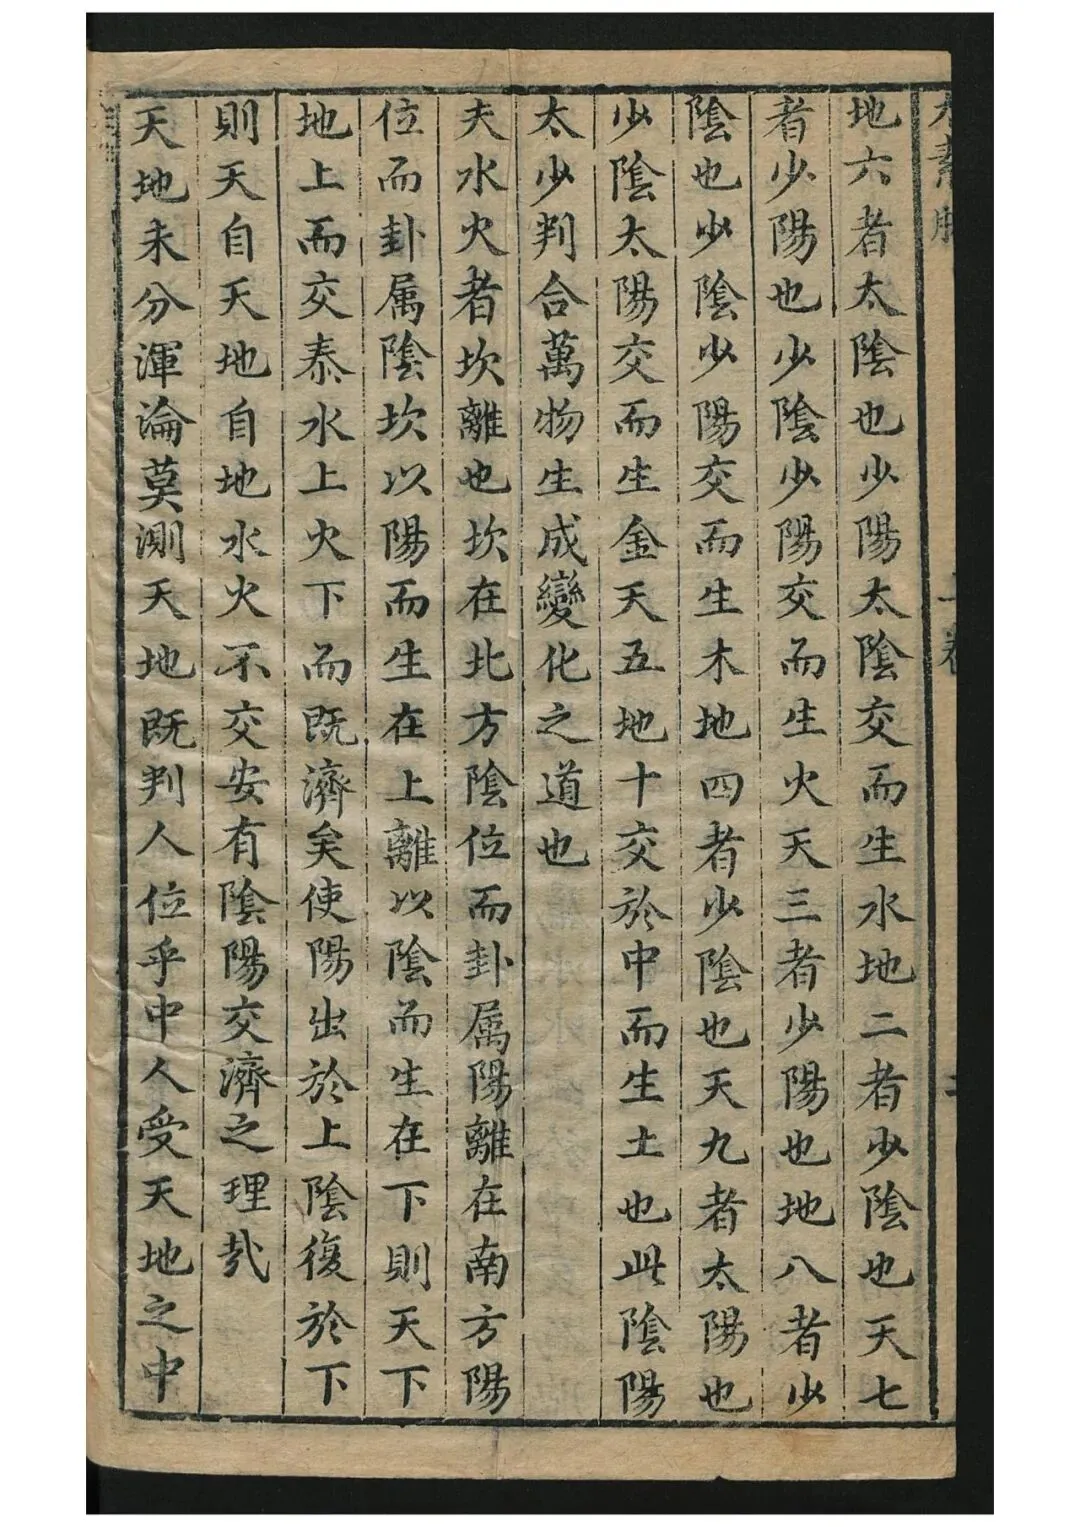 太素脉
上卷
二
地六者太陰也少陽太陰交而生水地二者少陰也天七
者少陽也少陰少陽交而生火天三者少陽也地八者少
陰也少陰少陽交而生木地四者少陰也天九者太陽也
少陰太陽交而生金天五地十交於中而生土也此陰陽
太少判合萬物生成變化之道也
夫水火者坎離也坎在北方陰位而卦属陽離在南方陽
位而卦属陰坎以陽而生在上離以陰而生在下則天下
地上而交泰水上火下而既濟矣使陽出於上陰復於下
則天自天地自地水火不交安有陰陽交濟之理㢤
天地未分渾淪莫測天地既判人位乎中人受天地之中